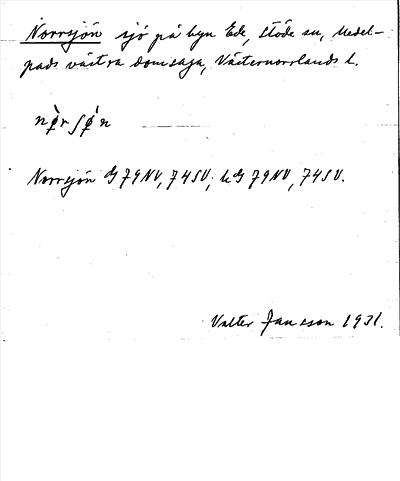 Norrsjön sjö på byn Ede, Stöde sn, Medel-
pads västra domsaga, Västernorrlands l.
nø̀rʃǿn
Norrsjön G 79NV, 74SV; kG 79NV, 74SV.
Valter Jansson 1931.